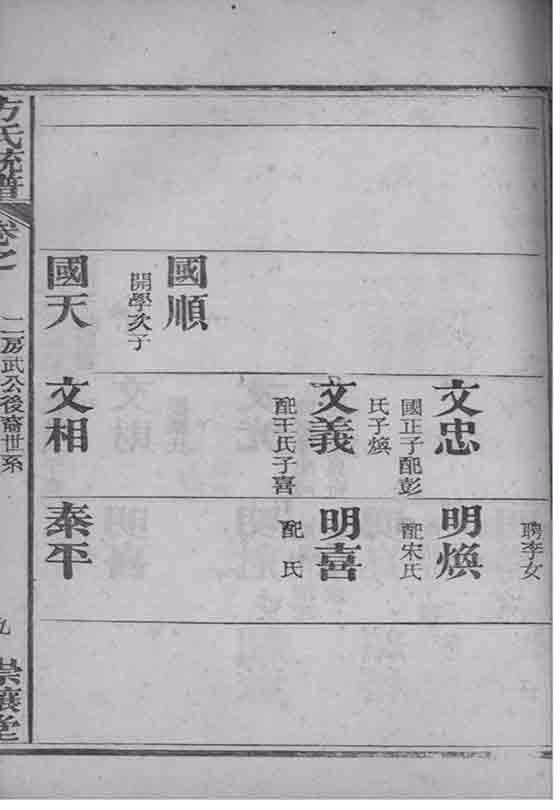 聘李女
文忠
國正子配彭
氏子煥
明煥
配宋氏
文義
配王氏子喜
明喜
配氏
國順
開學次子
國天
文相
秦平
方氏統譜
卷之
二房武公後裔世系
九
崇讓堂